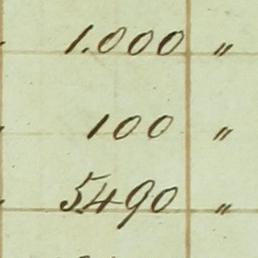 1.000 "
100 "
5490 "